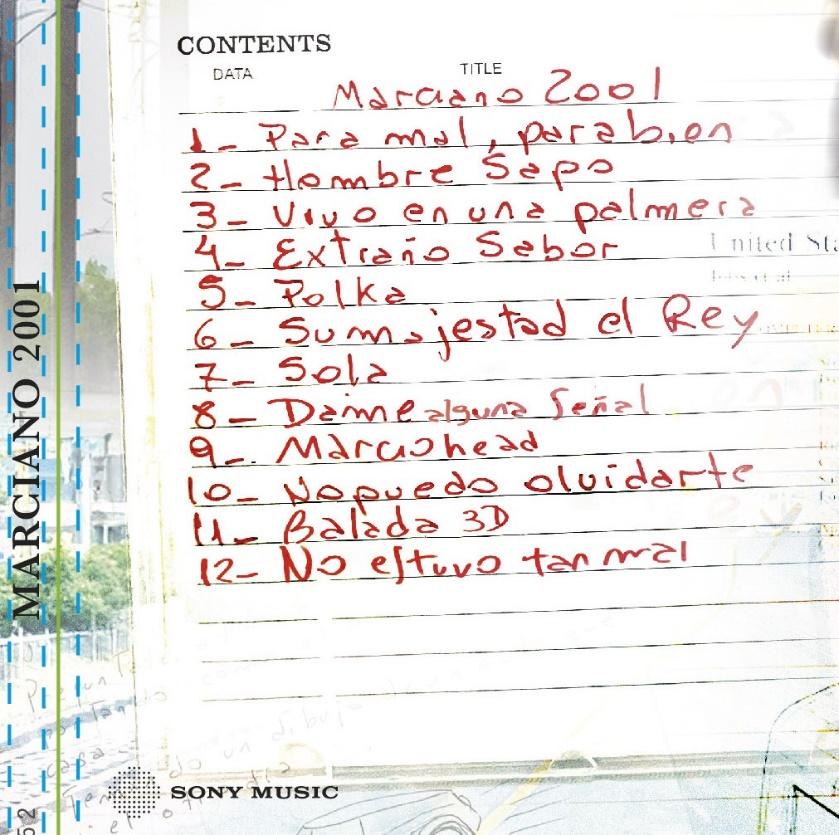 CONTENTS
DATA
TITLE
Marciano 2001
1- Para mal, para bien
2- Hombre Sapo
3- Vivo en una palmera
4- Extraño Sabor
United Sta
5- Polka
6- Su majestad el Rey
7- Sola
8- Dame alguna señal
9- Marciohead
10- No puedo olvidarte
11- Balada 3D
12- No estuvo tan mal
MARCIANO 2001
un dibujo
capa
SONY MUSIC
52